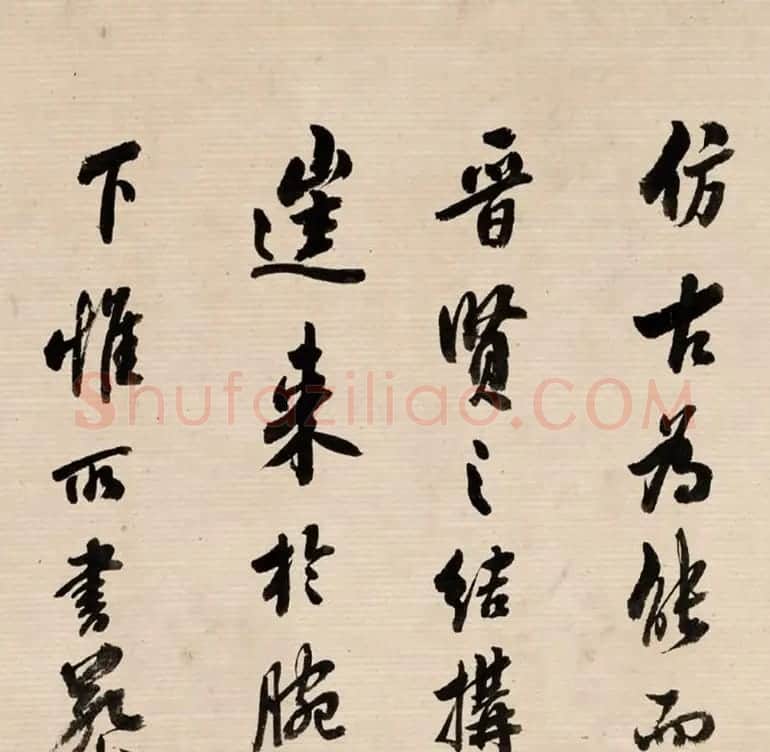 仿古为能而
晋贤之结構
遳来於腕
下惟所書
Shufaziliao.COM